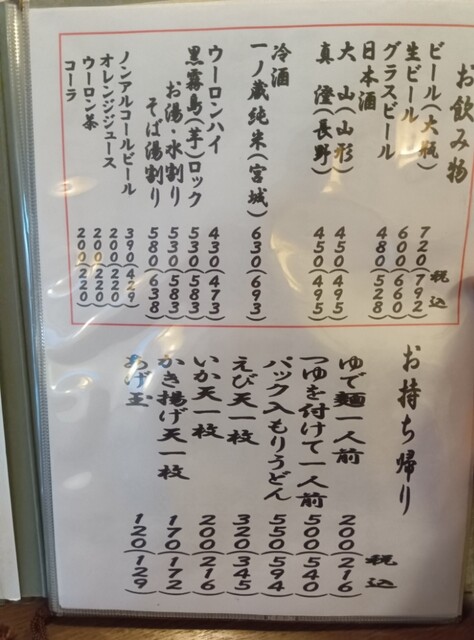 お飲み物
税込
ビール(大瓶) 720(792)
生ビール 600(660)
グラスビール 480(528)
日本酒
大山(山形) 450(495)
真澄(長野) 450(495)
冷酒
一ノ蔵純米(宮城) 630(693)
ウーロンハイ 430(473)
黒霧島(芋)ロック 530(583)
お湯・水割り 530(583)
そば湯割り 580(638)
ノンアルコールビール 390(429)
オレンジジュース 200(220)
ウーロン茶 200(220)
コーラ 200(220)
お持ち帰り
税込
ゆで麺一人前 200(216)
つゆを付けて一人前 500(540)
パック入もりうどん 550(594)
えび天一枚 320(345)
いか天一枚 200(216)
かき揚げ天一枚 170(172)
あげ玉 120(129)